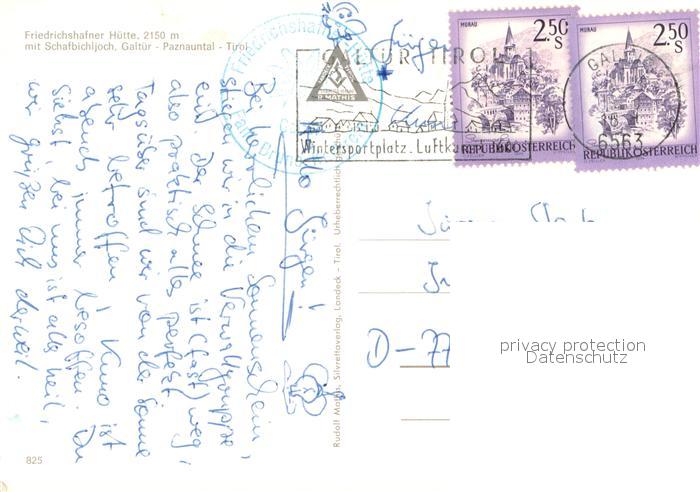 Friedrichshafner Hütte, 2150 m
mit Schafbichljoch, Galtür - Paznauntal - Tirol
Hallo Jürgen!
Bei herrlichem Sonnenschein,
stiegen wir in die Verwallgruppe
ein. Der Schnee ist (fast) weg,
also praktisch alles perfekt.
Tagsüber sind wir von der Sonne
sehr betroffen, Kuno ist
abends immer besoffen. Du
siehst, bei uns ist alles heil,
wir grüßen Dich derweil.
Jürgen
Friedrichshafner Hütte
R. MATHIS
TIROL
Wintersportplatz. Luftku
MURAU
2.50
S
REPUBLIK ÖSTERREICH
MURAU
2.50
S
REPUBLIK ÖSTERREICH
GAL
6563
D-77
privacy protection
Datenschutz
Rudolf Mathis, Silvrettaverlag, Landeck - Tirol. Urheberrechtlich
825